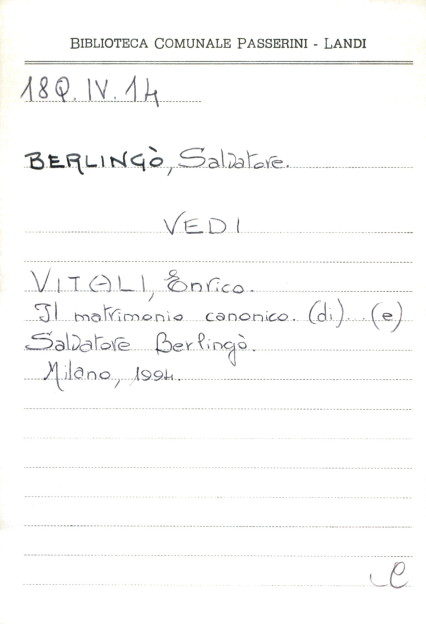 BIBLIOTECA COMUNALE PASSERINI - LANDI
18Q.IV.14
BERLINGÒ, Salvatore.
VEDI
VITALI, Enrico.
Il matrimonio canonico. (di)...(e)
Salvatore Berlingò.
Milano, 1994.